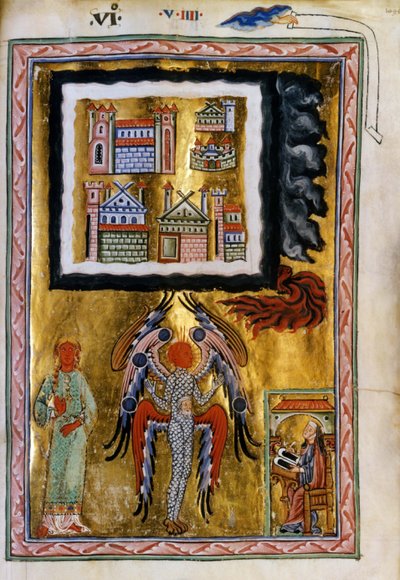 ·VI·
·V·IIII·